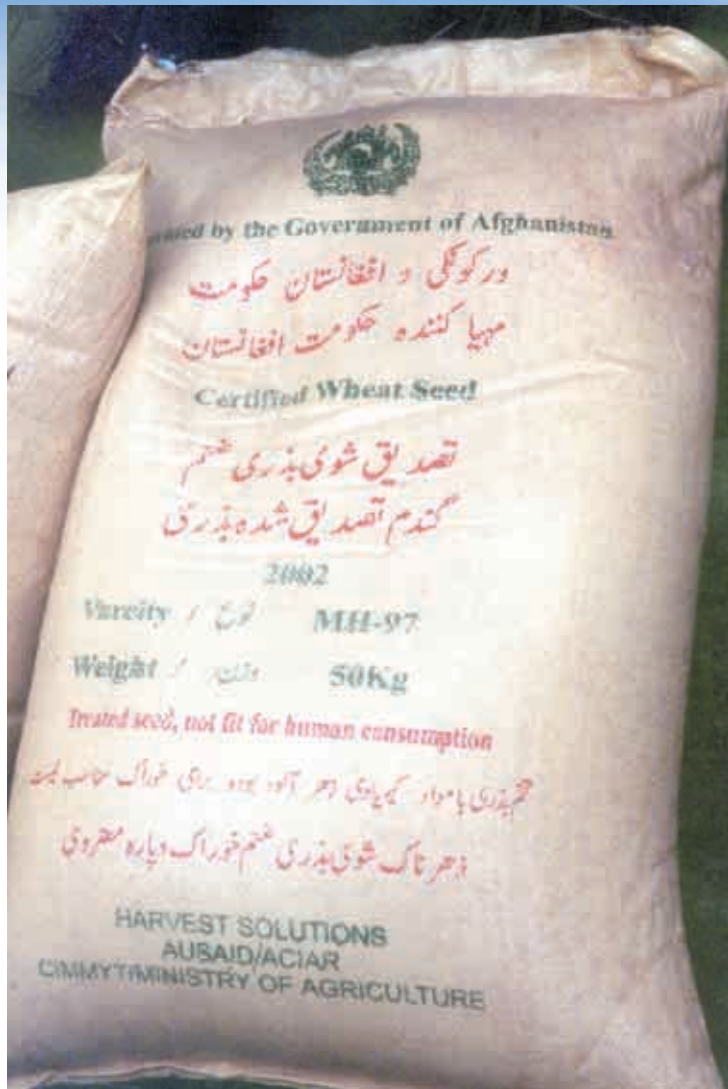 by the Government of Afghanistan
ورکوونکی د افغانستان حکومت
مهیا کننده حکومت افغانستان
Certified Wheat Seed
تصدیق شوی بذری غنم
گندم تصدیق شده بذری
2002
Vareity / نوع MH-97
Weight / وزن 50Kg
Treated seed, not fit for human consumption
تخم بذری با مواد کیمیاوی زهر آلود بوده برای خوراک مناسب نیست
زهرناک شوی بذری غنم خوراک دپاره مضر دی
HARVEST SOLUTIONS
AUSAID/ACIAR
CIMMYT/MINISTRY OF AGRICULTURE